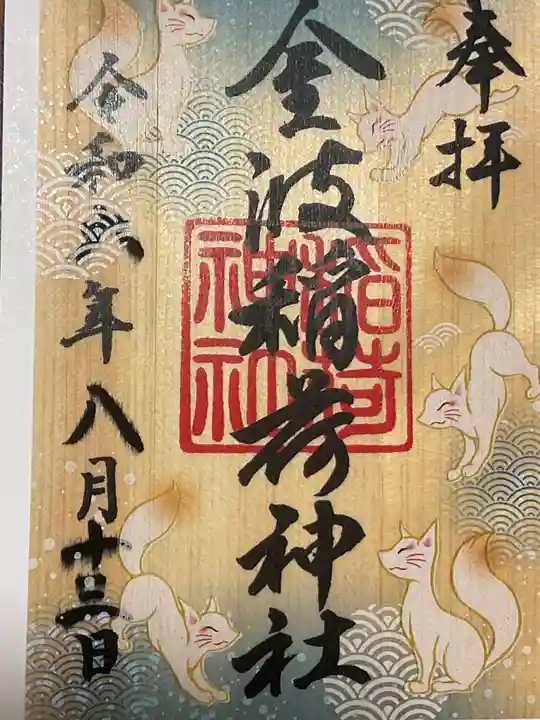 奉拝
金波稲荷神社
稲荷神社
令和六年八月十三日